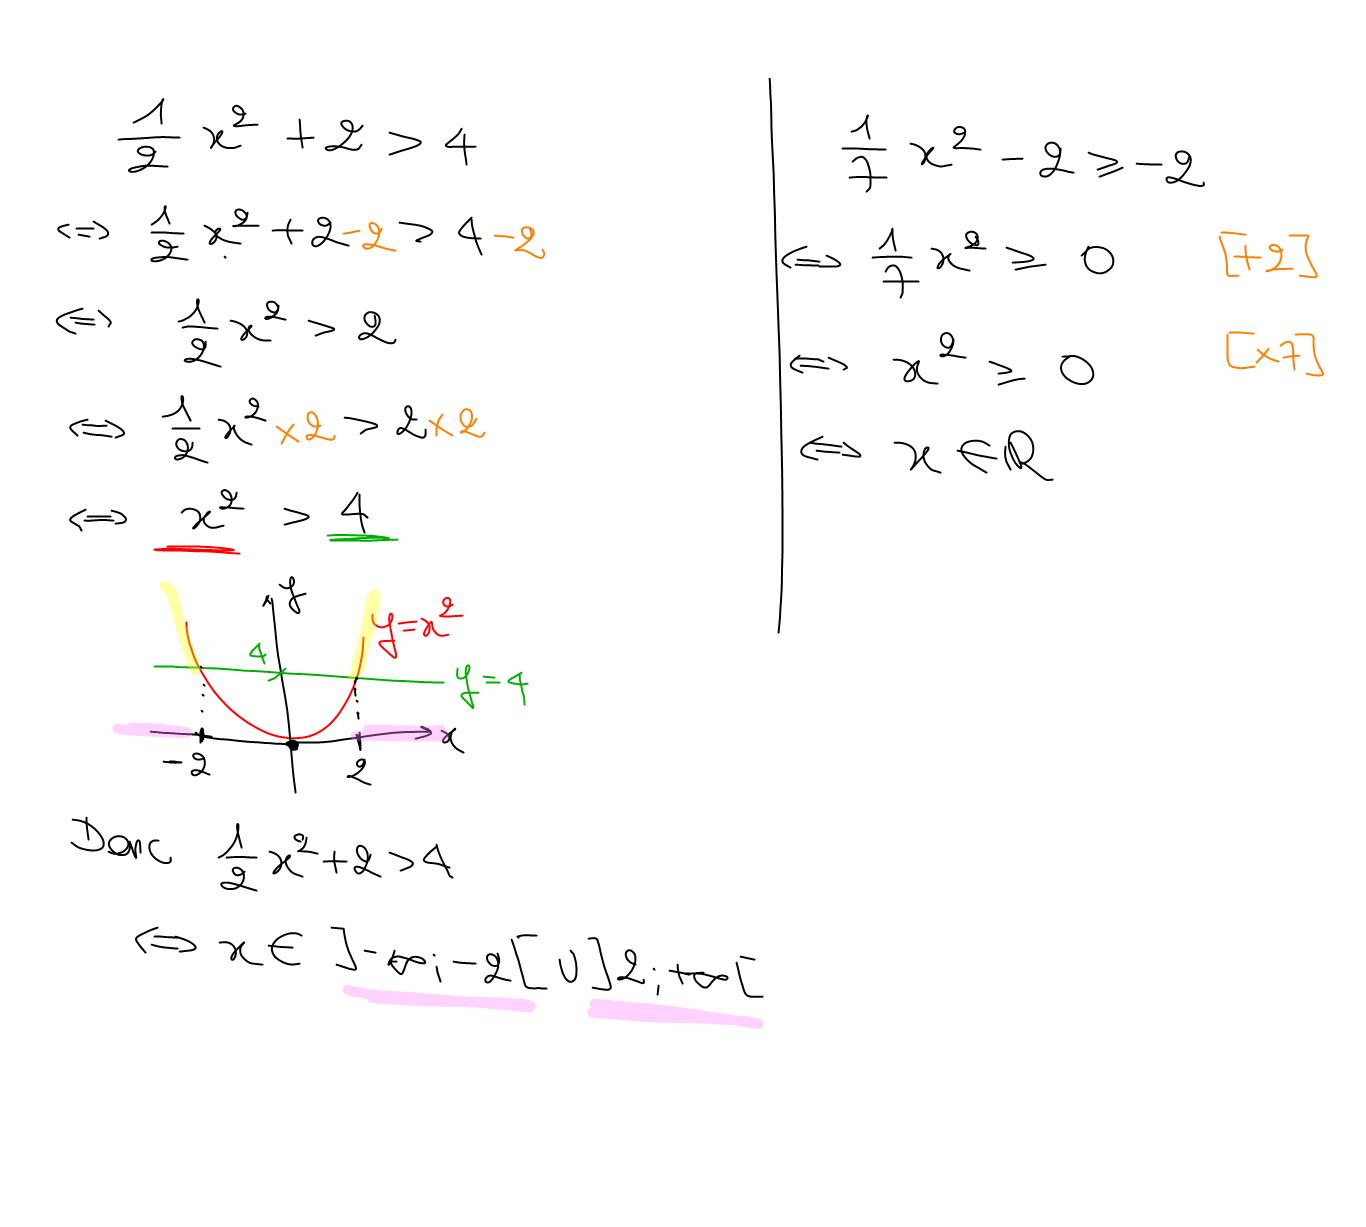 1/2 x² + 2 > 4
<=> 1/2 x² + 2 - 2 > 4 - 2
<=> 1/2 x² > 2
<=> 1/2 x² × 2 > 2 × 2
<=> x² > 4
y
y = x²
4
y = 4
x
-2
2
Donc 1/2 x² + 2 > 4
<=> x ∈ ]-∞; -2[ ∪ ]2; +∞[
1/7 x² - 2 ⩾ -2
<=> 1/7 x² ⩾ 0 [+2]
<=> x² ⩾ 0 [×7]
<=> x ∈ ℝ